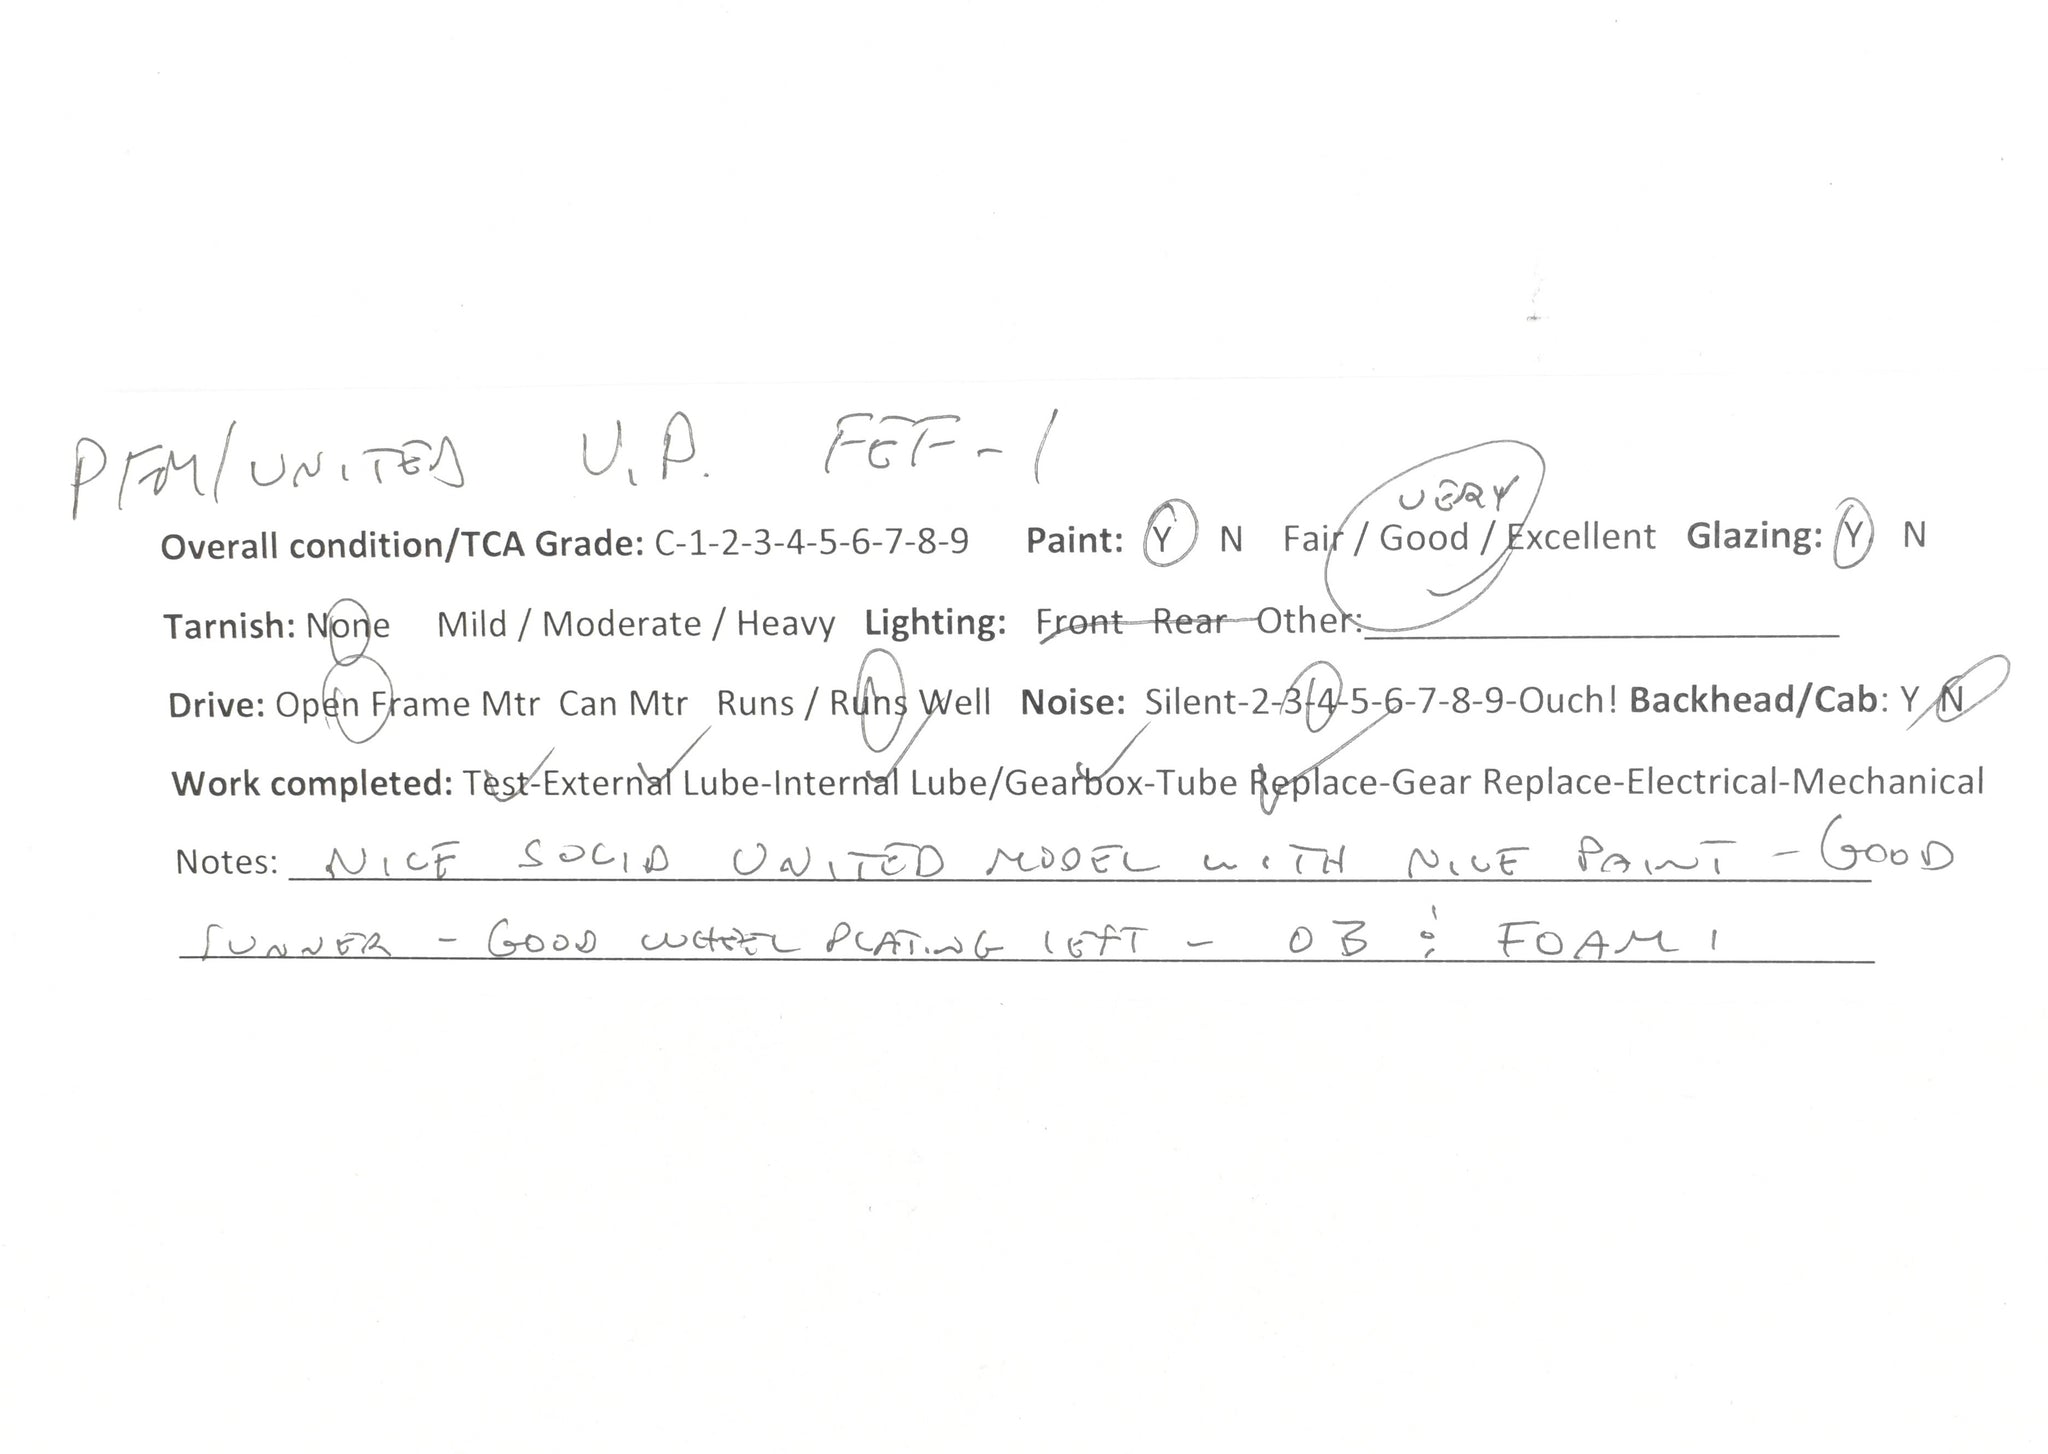 PFM/UNITED U.P. FEF-1
VERY
Overall condition/TCA Grade: C-1-2-3-4-5-6-7-8-9 Paint: Y N Fair / Good / Excellent Glazing: Y N
Tarnish: None Mild / Moderate / Heavy Lighting: Front Rear Other:
Drive: Open Frame Mtr Can Mtr Runs / Runs Well Noise: Silent-2-3-4-5-6-7-8-9-Ouch! Backhead/Cab: Y N
Work completed: Test-External Lube-Internal Lube/Gearbox-Tube Replace-Gear Replace-Electrical-Mechanical
Notes: NICE SOLID UNITED MODEL WITH NICE PAINT - GOOD
RUNNER - GOOD WHEEL PLATING LEFT - OB & FOAM!